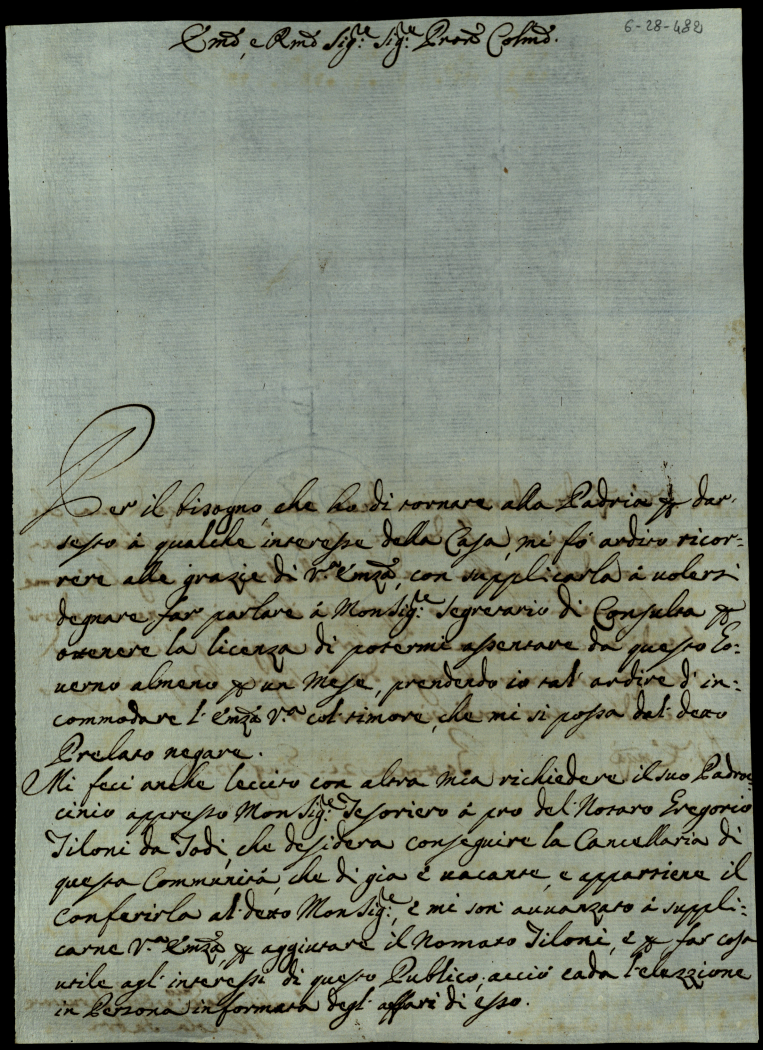 6-28-482
Emo, e Rmo Sig.re Sig.re Prone Colmo.
Per il bisogno, che ho di tornare alla Padria p dar'
sesto á qualche interesse della Casa, mi fó ardito ricor=
rere alle grazie di V.ra Emza, con supplicarla á volersi
degnare far parlare á MonSig.re Segretario di Consulta p
ottenere la licenza di potermi assentare da questo Go=
verno almeno p un Mese, prendendo io tal' ardire d' in=
commodare l' Emza V.ra col' timore, che mi si possa dal' detto
Prelato negare.
Mi feci anche leccito con altra mia richiedere il suo Padro=
cinio appresso MonSig.re Tesoriero á pro del' Notaro Gregorio
Tiloni da Todi, che desidera conseguire la Cancellaria di
questa Communitá, che di gia é vacante, e appartiene il
Conferirla al' detto MonSig.re, é mi son' avvanzato á suppli=
carne V.ra Emza, p aggiutare il Nomato Tiloni, é p far cosa
utile agl' interessi di questo Publico, acció cada l'eluzzione
in Persona informata degl' affari di esso.